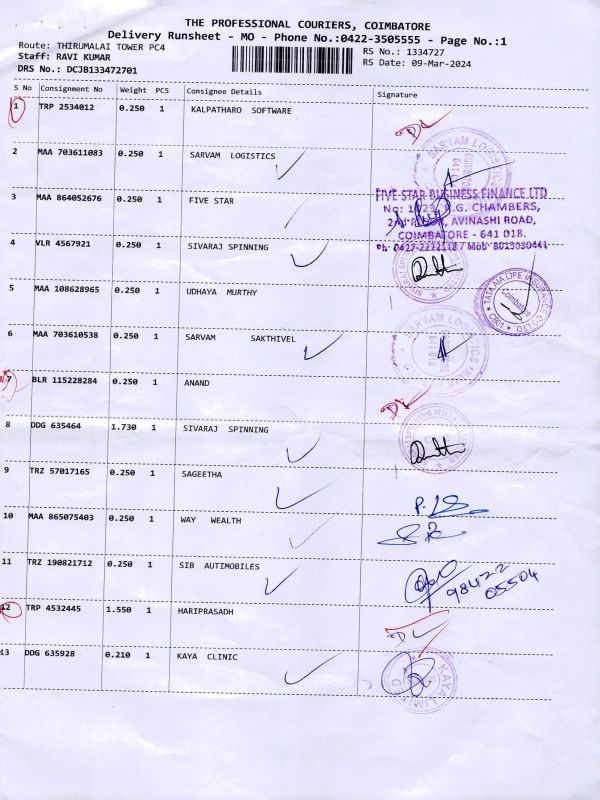 THE PROFESSIONAL COURIERS, COIMBATORE
Delivery Runsheet - MO - Phone No.:0422-3505555 - Page No.:1
Route: THIRUMALAI TOWER PC4
Staff: RAVI KUMAR
DRS No.: DCJB133472701
RS No.: 1334727
RS Date: 09-Mar-2024
S No Consignment No Weight PCS Consignee Details Signature
1 TRP 2534012 0.250 1 KALPATHARO SOFTWARE
2 MAA 703611083 0.250 1 SARVAM LOGISTICS
SARVAM LOGISTICS
3 MAA 864052676 0.250 1 FIVE STAR
FIVE STAR BUSINESS FINANCE LTD
CHAMBERS,
AVINASHI ROAD,
COIMBATORE - 641 018.
4 VLR 4567921 0.250 1 SIVARAJ SPINNING
5 MAA 108628965 0.250 1 UDHAYA MURTHY
TATA AIA LIFE INSURANCE CO LTD
Coimbatore
6 MAA 703610538 0.250 1 SARVAM SAKTHIVEL
SARVAM LOGISTICS
7 BLR 115228284 0.250 1 ANAND
8 DDG 635464 1.730 1 SIVARAJ SPINNING
9 TRZ 57017165 0.250 1 SAGEETHA
10 MAA 865075403 0.250 1 WAY WEALTH
11 TRZ 190821712 0.250 1 SIB AUTIMOBILES
98422
05504
12 TRP 4532445 1.550 1 HARIPRASADH
13 DDG 635928 0.210 1 KAYA CLINIC
KAYA LIMITED